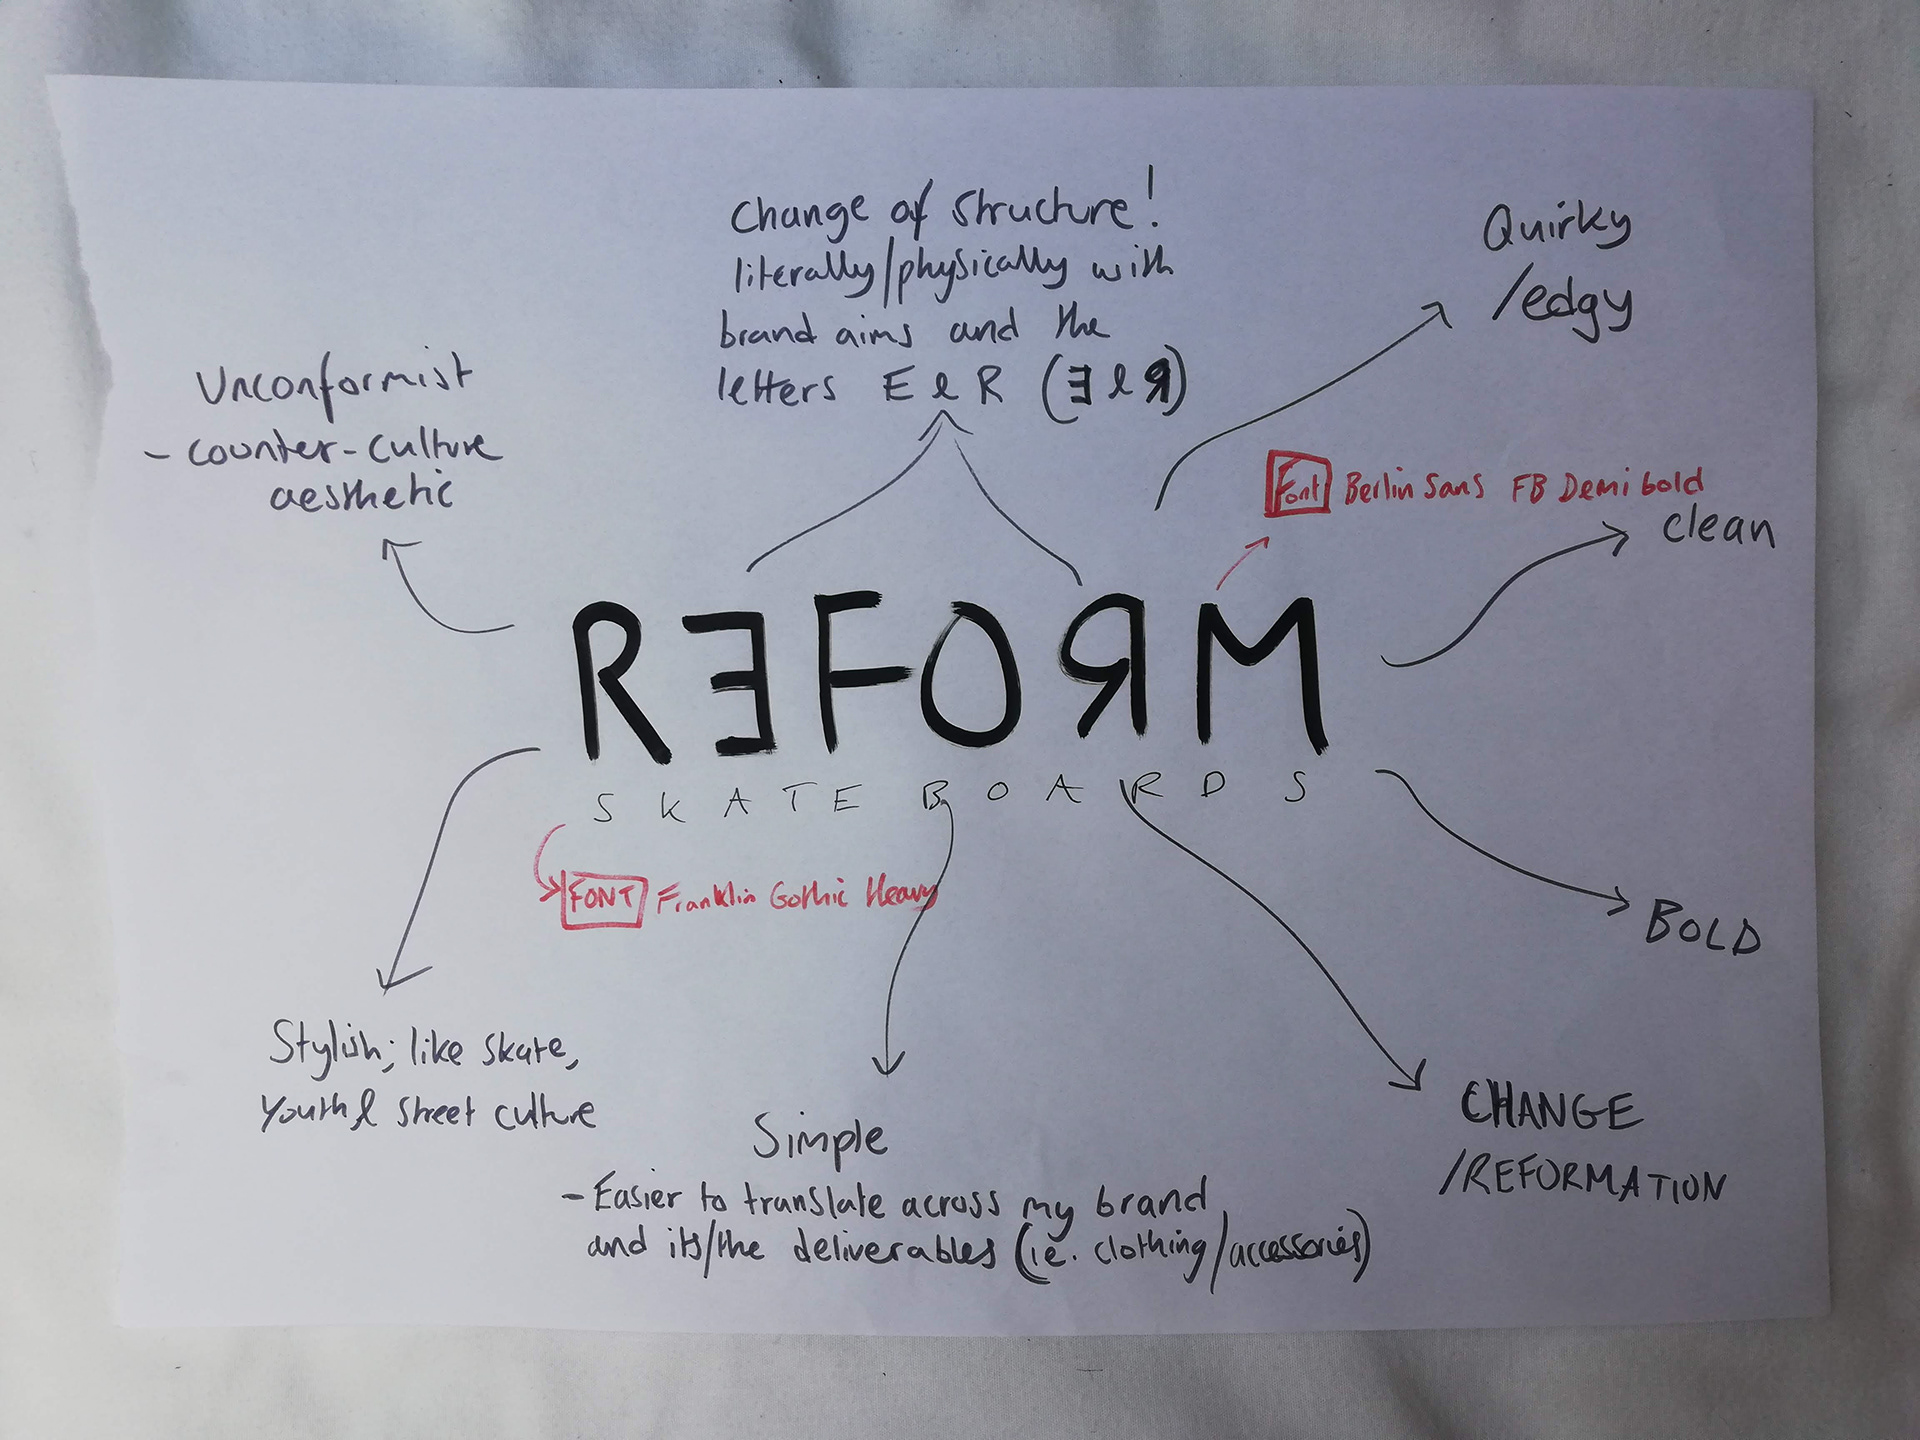 Change of structure!
literally/physically with
brand aims and the
letters E & R (Ǝ & Я)
Quirky
/edgy
Unconformist
- counter-culture
aesthetic
Font Berlin Sans FB Demi bold
clean
RƎFOЯM
SKATEBOARDS
FONT Franklin Gothic Heavy
BOLD
Stylish; like skate,
youth & street culture
Simple
- Easier to translate across my brand
and its/the deliverables (ie. clothing/accessories)
CHANGE
/REFORMATION